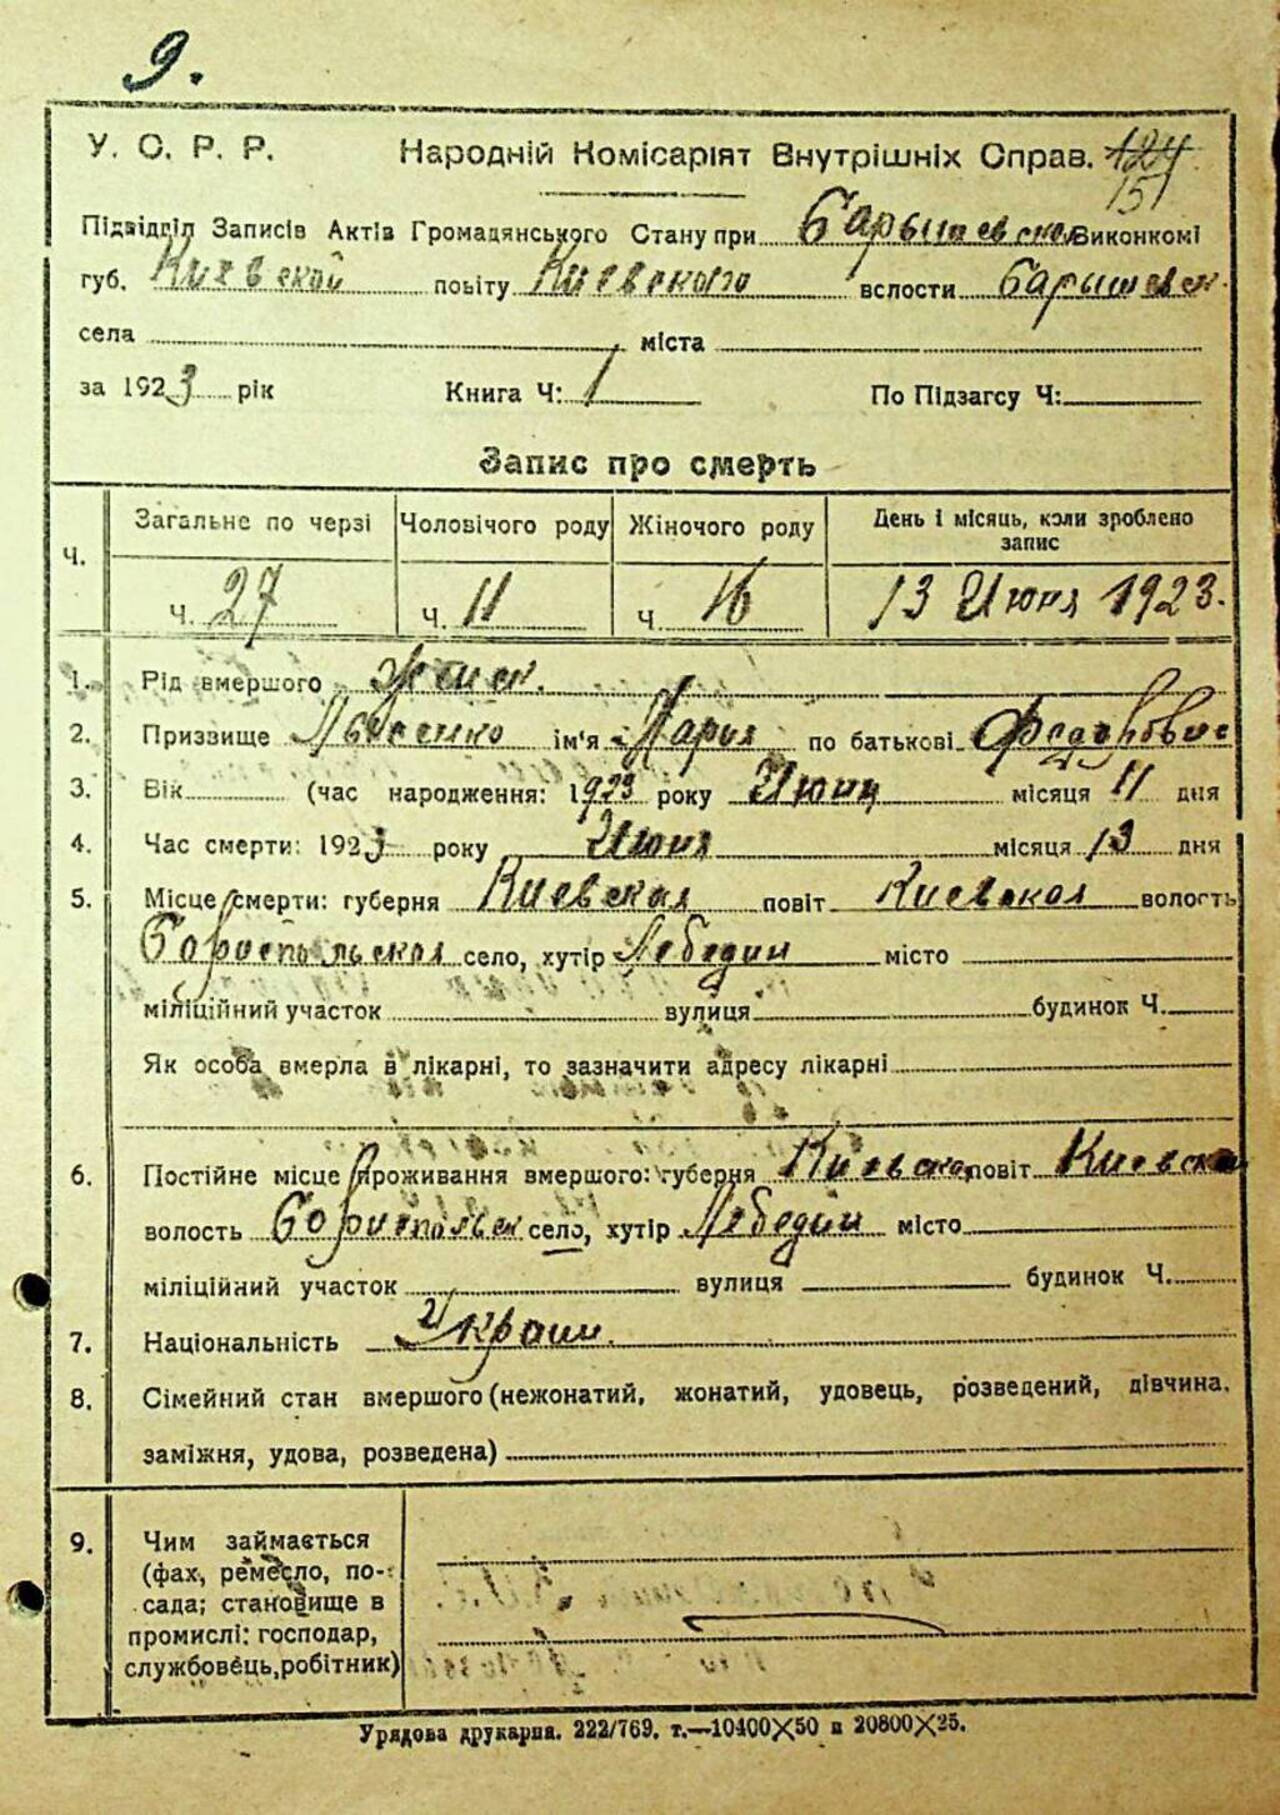 9.
У. С. Р. Р. Народній Комісаріят Внутрішніх Справ. 124
151
Підвідділ Записів Актів Громадянського Стану при Барышевском Виконкомі
губ. Киевской повіту Киевского вслости Барышевск.
села міста
за 1923 рік Книга Ч: 1 По Підзагсу Ч:
Запис про смерть
Ч. Загальне по черзі Чоловічого роду Жіночого роду День і місяць, коли зроблено запис
Ч. 27 Ч. 11 Ч 16 13 Июня 1923.
1. Рід вмершого Женск.
2. Призвище ім'я Марья по батькові Федоровна
3. Вік (час народження: 1923 року Июня місяця 11 дня
4. Час смерти: 1923 року Июня місяця 13 дня
5. Місце смерти: губерня Киевская повіт Киевская волость
Бориспольская село, хутір Лебедин місто
міліційний участок вулиця будинок Ч.
Як особа вмерла в лікарні, то зазначити адресу лікарні
6. Постійне місце проживання вмершого: губерня Киевская повіт Киевская
волость Бориспольск село, хутір Лебедин місто
міліційний участок вулиця будинок Ч.
7. Національність Украин.
8. Сімейний стан вмершого (нежонатий, жонатий, удовець, розведений, дівчина.
заміжня, удова, розведена)
9. Чим займається
(фах, ремесло, по-
сада; становище в
промислі: господар,
службовець, робітник)
Урядова друкарня. 222/769. т.—10400X50 и 20800X25.